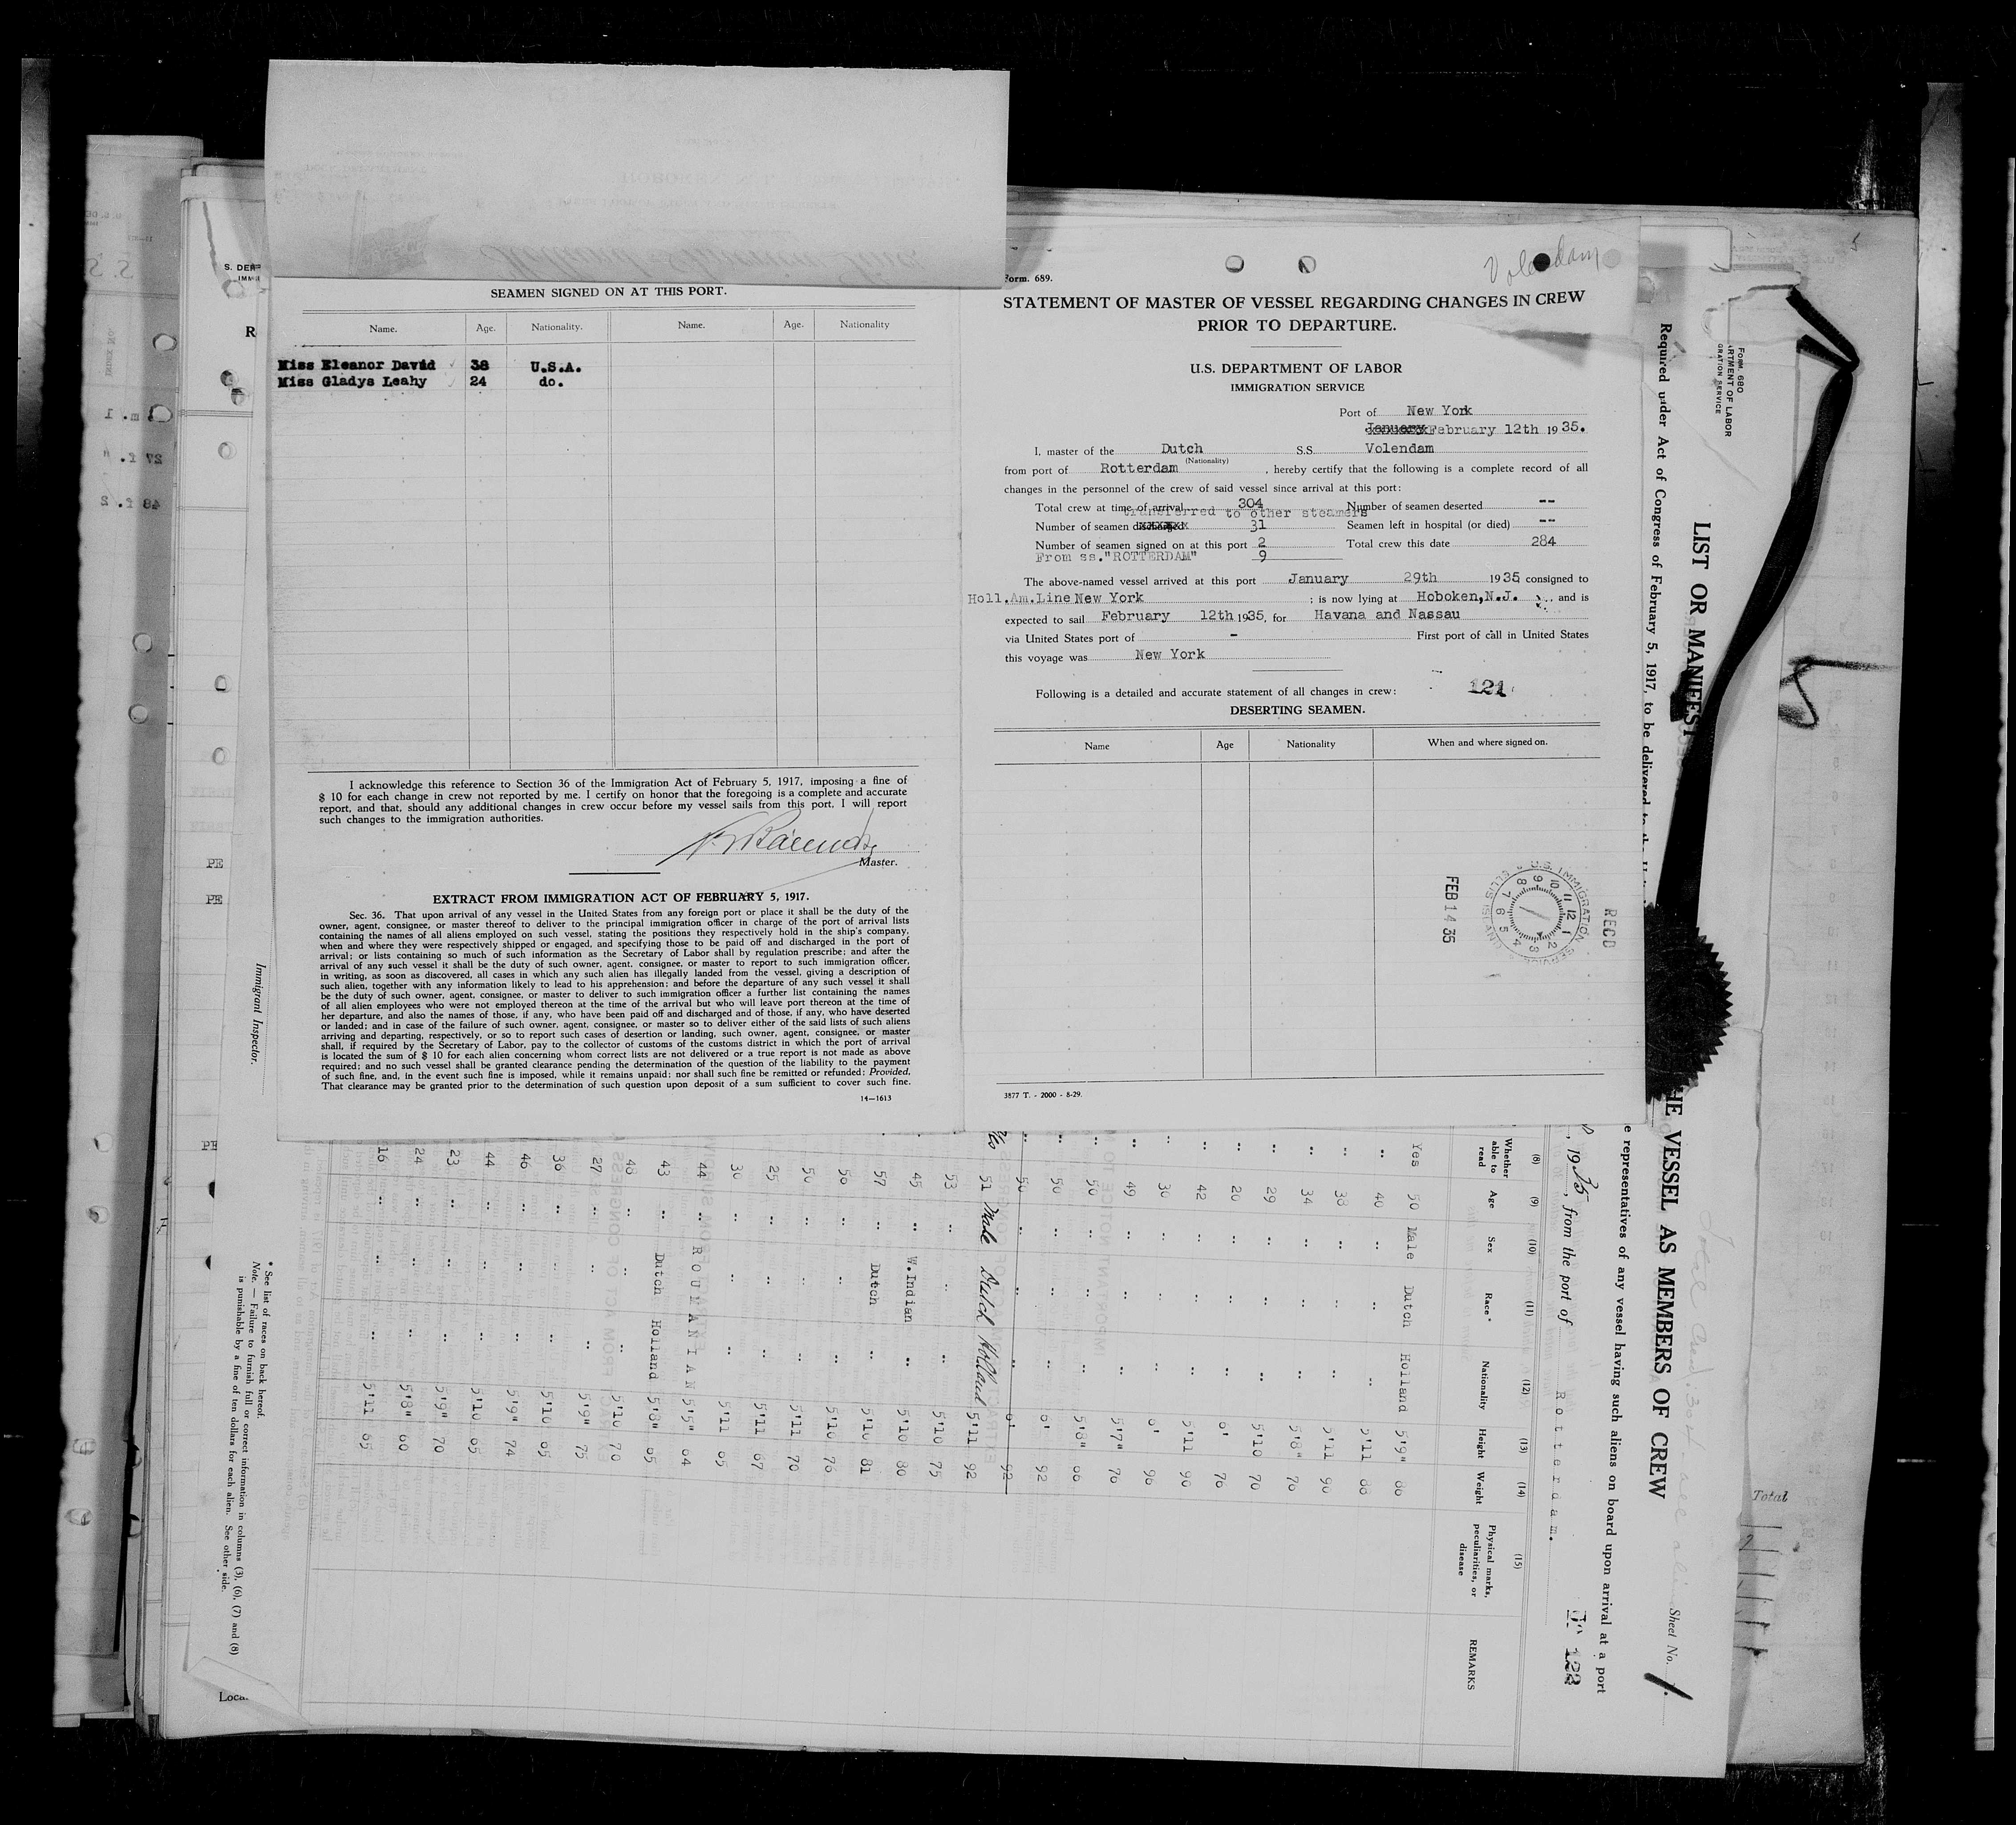 SEAMEN SIGNED ON AT THIS PORT.
Name. Age. Nationality. Name. Age. Nationality
Miss Eleanor David 38 U.S.A.
Miss Gladys Leahy 24 do.
I acknowledge this reference to Section 36 of the Immigration Act of February 5, 1917, imposing a fine of
$ 10 for each change in crew not reported by me. I certify on honor that the foregoing is a complete and accurate
report, and that, should any additional changes in crew occur before my vessel sails from this port, I will report
such changes to the immigration authorities.
Master.
EXTRACT FROM IMMIGRATION ACT OF FEBRUARY 5, 1917.
Sec. 36. That upon arrival of any vessel in the United States from any foreign port or place it shall be the duty of the
owner, agent, consignee, or master thereof to deliver to the principal immigration officer in charge of the port of arrival lists
containing the names of all aliens employed on such vessel, stating the positions they respectively hold in the ship's company,
when and where they were respectively shipped or engaged, and specifying those to be paid off and discharged in the port of
arrival; or lists containing so much of such information as the Secretary of Labor shall by regulation prescribe; and after the
arrival of any such vessel it shall be the duty of such owner, agent, consignee, or master to report to such immigration officer,
in writing, as soon as discovered, all cases in which any such alien has illegally landed from the vessel, giving a description of
such alien, together with any information likely to lead to his apprehension; and before the departure of any such vessel it shall
be the duty of such owner, agent, consignee, or master to deliver to such immigration officer a further list containing the names
of all alien employees who were not employed thereon at the time of the arrival but who will leave port thereon at the time of
her departure, and also the names of those, if any, who have been paid off and discharged and of those, if any, who have deserted
or landed; and in case of the failure of such owner, agent, consignee, or master so to deliver either of the said lists of such aliens
arriving and departing, respectively, or so to report such cases of desertion or landing, such owner, agent, consignee, or master
shall, if required by the Secretary of Labor, pay to the collector of customs of the customs district in which the port of arrival
is located the sum of $ 10 for each alien concerning whom correct lists are not delivered or a true report is not made as above
required; and no such vessel shall be granted clearance pending the determination of the question of the liability to the payment
of such fine, and, in the event such fine is imposed, while it remains unpaid; nor shall such fine be remitted or refunded: Provided,
That clearance may be granted prior to the determination of such question upon deposit of a sum sufficient to cover such fine.
14—1613
Volendam
Form. 689.
STATEMENT OF MASTER OF VESSEL REGARDING CHANGES IN CREW
PRIOR TO DEPARTURE.
U.S. DEPARTMENT OF LABOR
IMMIGRATION SERVICE
Port of New York
January February 12th 1935.
I, master of the Dutch S.S. Volendam
(Nationality)
from port of Rotterdam, hereby certify that the following is a complete record of all
changes in the personnel of the crew of said vessel since arrival at this port:
Total crew at time of arrival 304 Number of seamen deserted --
transferred to other steamers
Number of seamen discharged 31 Seamen left in hospital (or died) --
Number of seamen signed on at this port 2 Total crew this date 284
From ss."ROTTERDAM" 9
The above-named vessel arrived at this port January 29th 1935 consigned to
Holl.Am.Line New York ; is now lying at Hoboken,N.J. and is
expected to sail February 12th 1935, for Havana and Nassau
via United States port of - First port of call in United States
this voyage was New York
Following is a detailed and accurate statement of all changes in crew: 121
DESERTING SEAMEN.
Name Age Nationality When and where signed on.
RECD
U.S. IMMIGRATION SERVICE ELLIS ISLAND
FEB 14 35
3877 T. - 2000 - 8-29.
Form 680
LIST OR MANIFEST
HE VESSEL AS MEMBERS OF CREW
Sheet No. 1
Required under Act of Congress of February 5, 1917, to be delivered to the
e representatives of any vessel having such aliens on board upon arrival at a port
, 1935, from the port of Rotterdam.
122
(8) (9) (10) (11) (12) (13) (14) (15)
Whether able to read Age Sex Race* Nationality Height Weight Physical marks, peculiarities, or disease REMARKS
Yes 50 Male Dutch Holland 5'9" 86
" 40 " " " 5'11 88
" 38 " " " 5'11 90
" 34 " " " 5'8" 76
" 29 " " " 5'10 70
" 20 " " " 6' 76
" 42 " " " 5'11 90
" 30 " " " 6' 96
" 49 " " " 5'7" 76
" 50 " " " 5'8" 66
" 50 " " " 6' 92
" 50 " " " 6' 92
Yes 51 Male Dutch Holland 5'11 92
53 " " " 5'10 75
45 " W.Indian " 5'10 80
57 " Dutch " 5'10 81
56 " " " 5'10 76
50 " " " 5'11 70
25 " " " 5'11 67
30 " " " 5'11 65
44 " ROUMANIAN 5'5" 64
43 " Dutch Holland 5'8" 65
48 " " " 5'10 70
27 " " " 5'9" 75
36 " " " 5'10 65
46 " " " 5'9" 74
44 " " " 5'10 65
23 " " " 5'9" 70
24 " " " 5'8" 60
16 " " " 5'11 65
* See list of races on back hereof.
Note. — Failure to furnish full or correct information in columns (3), (6), (7) and (8)
is punishable by a fine of ten dollars for each alien. See other side.
Immigrant Inspector.
Total